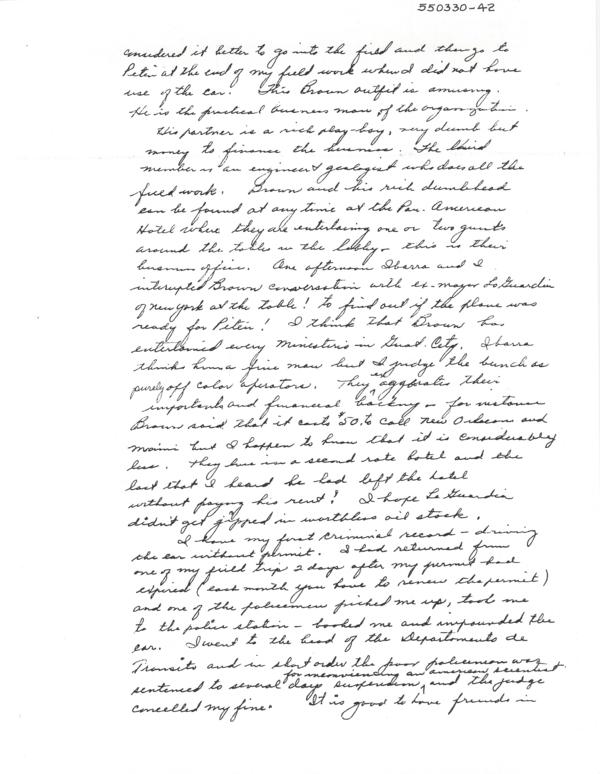 550330-42
considered it better to go into the field and then go to
Peten at the end of my field work when I did not have
use of the car. This Brown outfit is amusing.
He is the practical business man of the organization.
His partner is a rich play-boy, very dumb but
money to finance the business. The third
member is an engineer & geologist who does all the
field work. Brown and his rich dumbhead
can be found at any time at the Pan. American
Hotel where they are entertaing one or two guests
around the table in the lobby - this is their
business office. One afternoon Ibarra and I
interupted Brown conversation with ex-mayor La Guardia
of New York at the table! to find out if the plane was
ready for Peten! I think that Brown has
entertained every Ministerio in Guat. City. Ibarra
thinks him a fine man but I judge the bunch as
purely off color operators. They exaggerates their
importants and financial backing - for instance
Brown said that it costs $50. to call New Orleans and
Maimi but I happen to know that it is considerably
less. They live in a second rate hotel and the
last that I heard he had left the hotel
without paying his rent! I hope La Guardia
didn't get gypped in worthless oil stock.
I have my first criminal record - driving
the car without permit. I had returned from
one of my field trip 2 days after my permit had
expired (each month you have to renew the permit)
and one of the policemen picked me up, took me
to the police station - booked me and impounded the
car. I went to the head of the Departmento de
Transito and in short order the poor policeman was
for inconveniencing an american scientist
sentenced to several days suspension, and the judge
cancelled my fine. It is good to have friends in